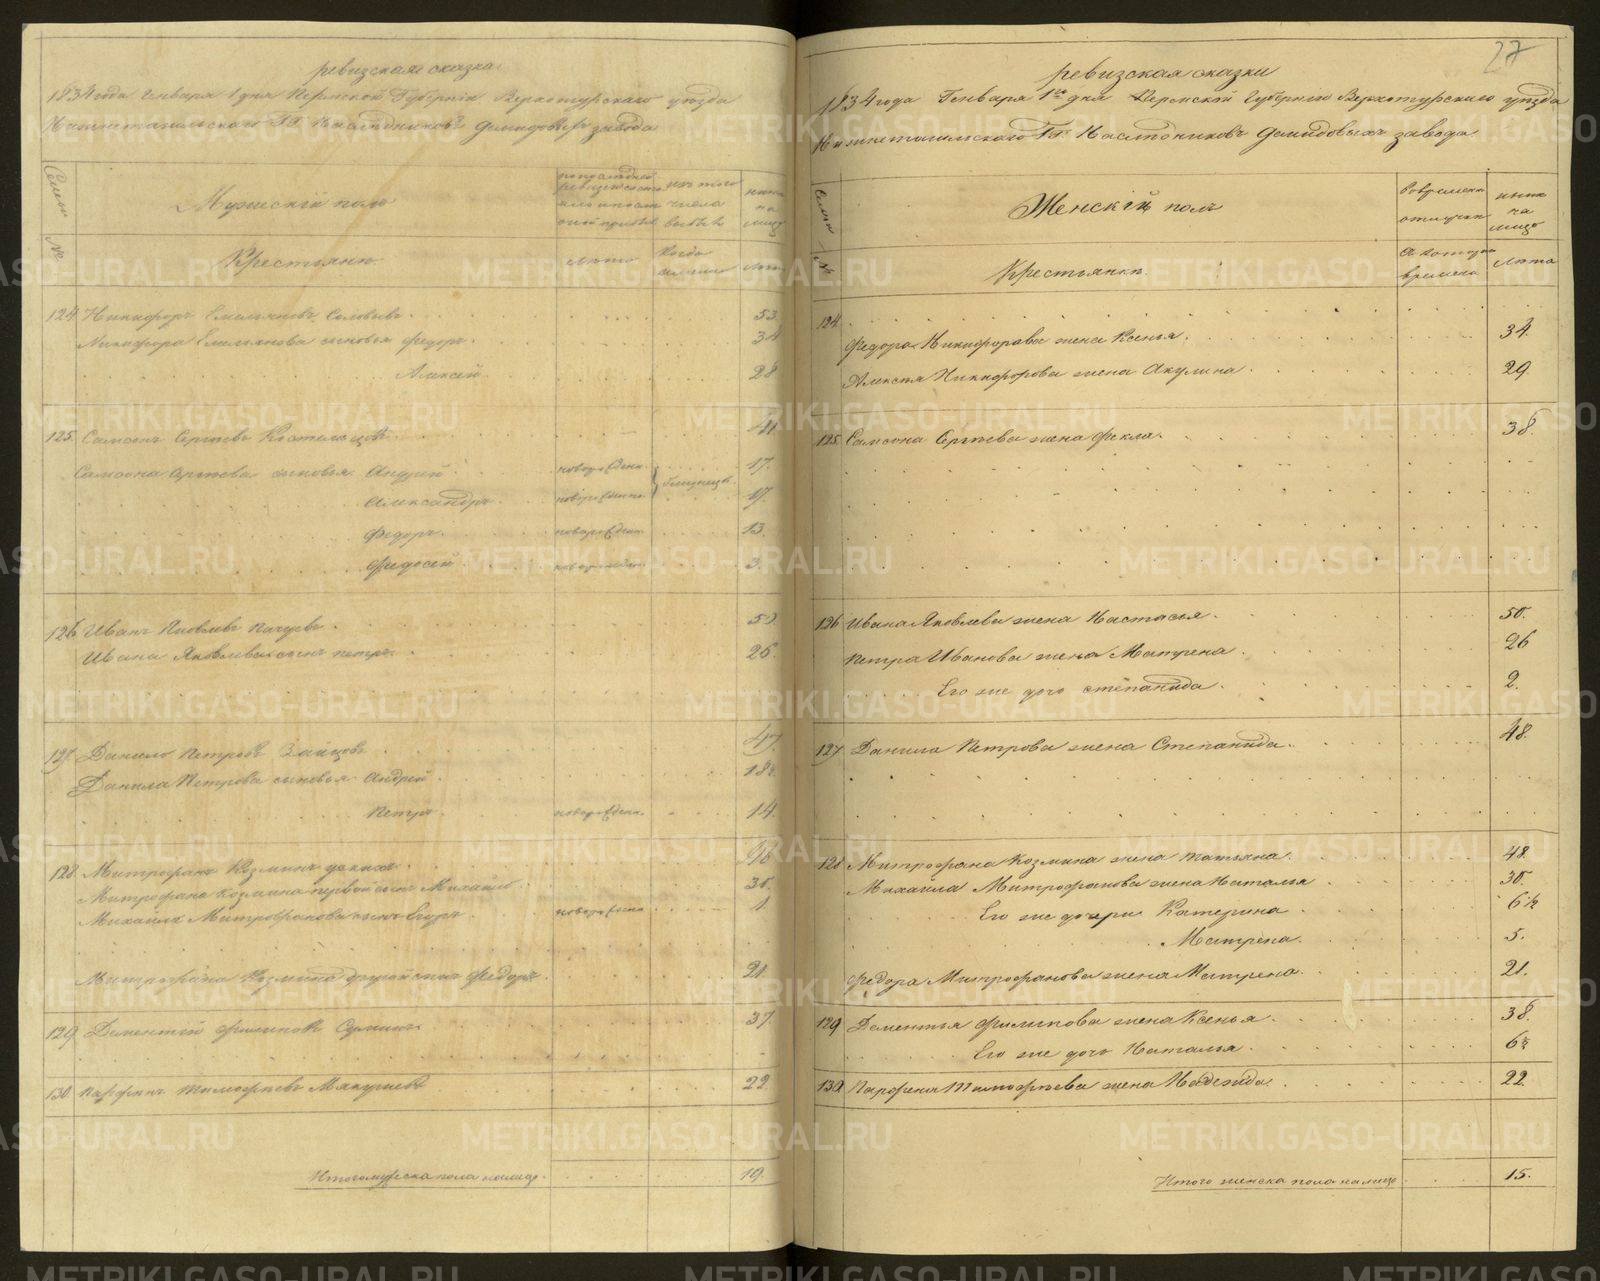 ревизская сказка
1834 года Генваря 1 дня Пермской Губернiи Верхотурскаго уезда
Нижнетагильскаго ГГ. Наследниковъ Демидовыхъ завода
Семьи
Мужескiй полъ
изъ того числа выбыло
ныне на лицо
№
Крестьяне
лета
Когда именно
лета
124 Никифоръ Емельяновъ Соловьевъ 53
Никифора Емельянова сыновья Федоръ 34
Алексей 28
125 Самсонъ Сергеевъ 41
Самсона Сергеева сыновья Андрей новорожденъ 17
близнецы
Александръ новорожденъ 17
Федоръ новорожденъ 13
Федосей новорожденъ 3
126 Иванъ Яковлевъ Пичуевъ 50
Ивана Яковлева сынъ Петръ 26
127 Данило Петровъ Зайцовъ 47
Данила Петрова сыновья Андрей 18
Петръ новорожденъ 14
128 Митрофанъ Козминъ 46
Митрофана Козмина первой сынъ Михайло 30
Михайла Митрофанова сынъ Егоръ новорожденъ 1
Митрофана Козмина другой сынъ Федоръ 21
129 Дементей Филиповъ 37
130 Парфенъ Тимофеевъ Мякушевъ 22
Итого мужеска пола налицо 19
27
ревизская сказка
1834 года Генваря 1го дня Пермской Губернiи Верхотурскаго уезда
Нижнетагильскаго ГГ. Наследниковъ Демидовыхъ завода
Семьи
Женскiй полъ
Во временной отлучке
ныне на лицо
№
Крестьянки
С котораго времени
лета
124
Федора Никифорова жена Ксенья 34
Алексея Никифорова жена Акулина 29
125 Самсона Сергеева жена Фекла 38
126 Ивана Яковлева жена Настасья 50
Петра Иванова жена Матрена 26
Его же дочь Степанида 2
127 Данила Петрова жена Степанида 48
128 Митрофана Козмина жена Татьяна 48
Михайла Митрофанова жена Наталья 30
Его же дочери Катерина 6½
Матрена 5
Федора Митрофанова жена Матрена 21
129 Дементья Филипова жена Ксенья 38
Его же дочь Наталья 6½
130 Парфена Тимофеева жена Надежда 22
Итого женска пола на лицо 15
METRIKI.GASO-URAL.RU